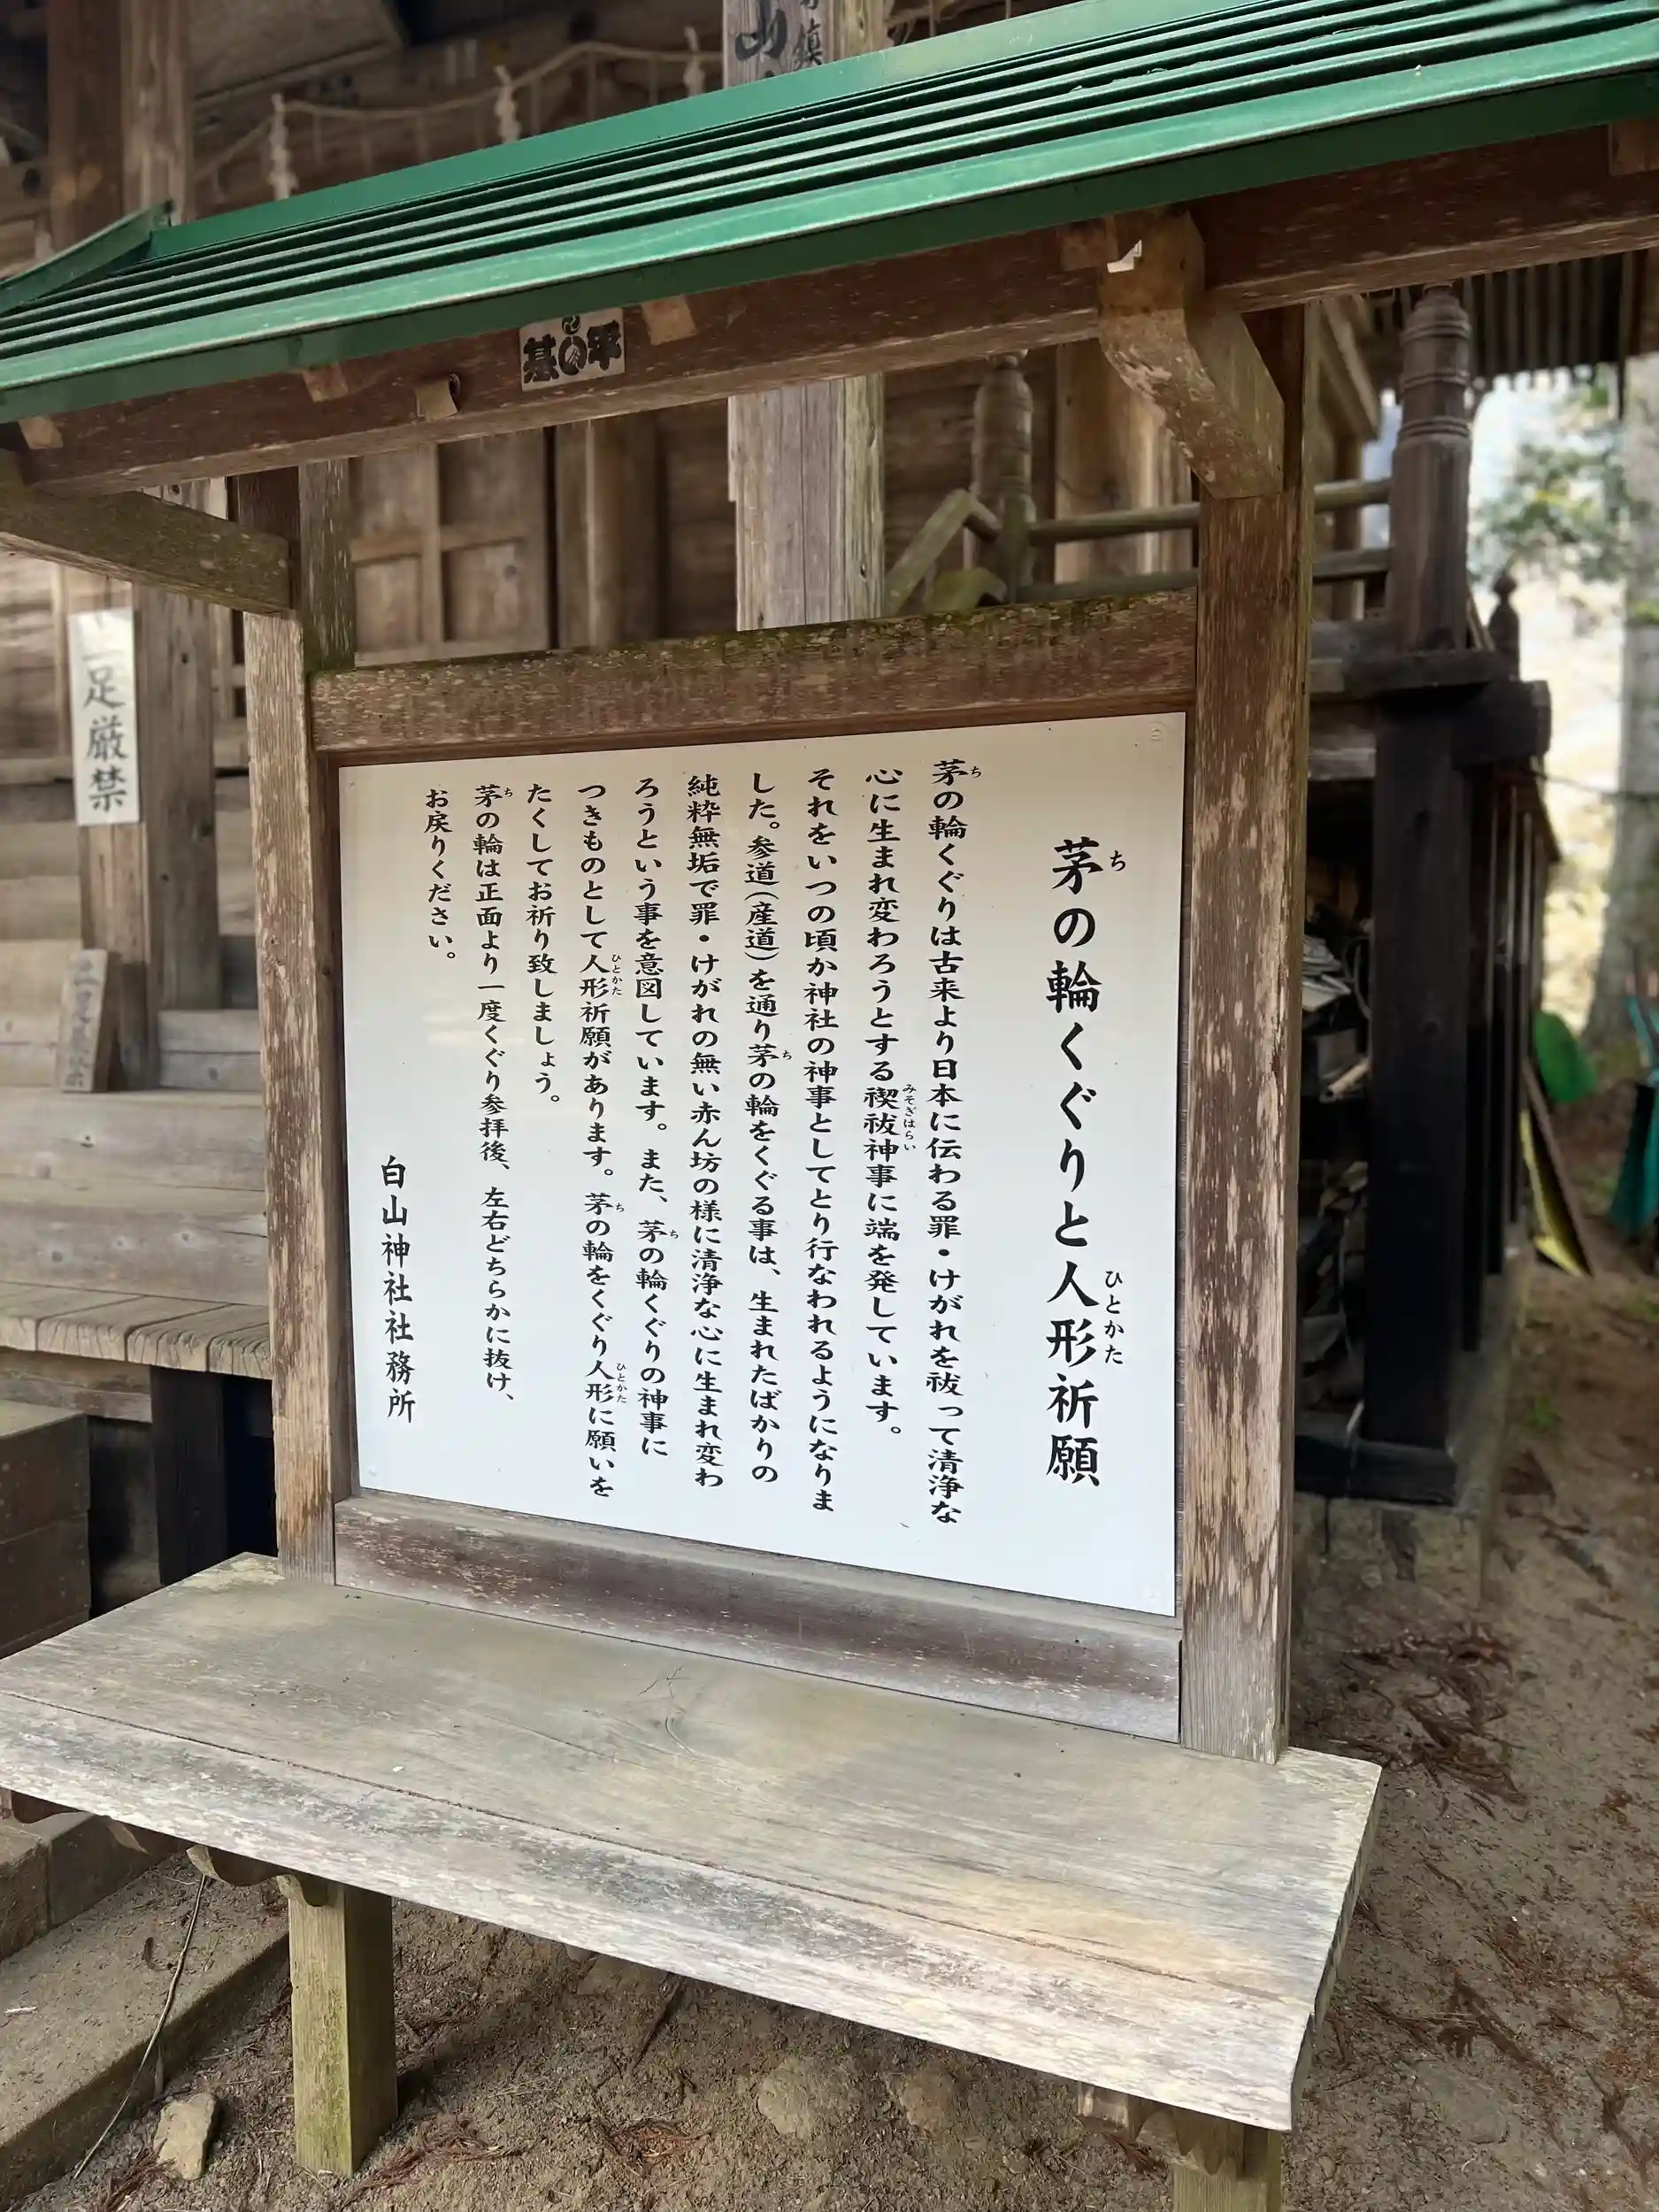 茅の輪くぐりと人形祈願
茅の輪くぐりは古来より日本に伝わる罪・けがれを祓って清浄な
心に生まれ変わろうとする禊祓神事に端を発しています。
それをいつの頃か神社の神事としてとり行なわれるようになりま
した。参道(産道)を通り茅の輪をくぐる事は、生まれたばかりの
純粋無垢で罪・けがれの無い赤ん坊の様に清浄な心に生まれ変わ
ろうという事を意図しています。また、茅の輪くぐりの神事に
つきものとして人形祈願があります。茅の輪をくぐり人形に願いを
たくしてお祈り致しましょう。
茅の輪は正面より一度くぐり参拝後、左右どちらかに抜け、
お戻りください。
白山神社社務所
足厳禁